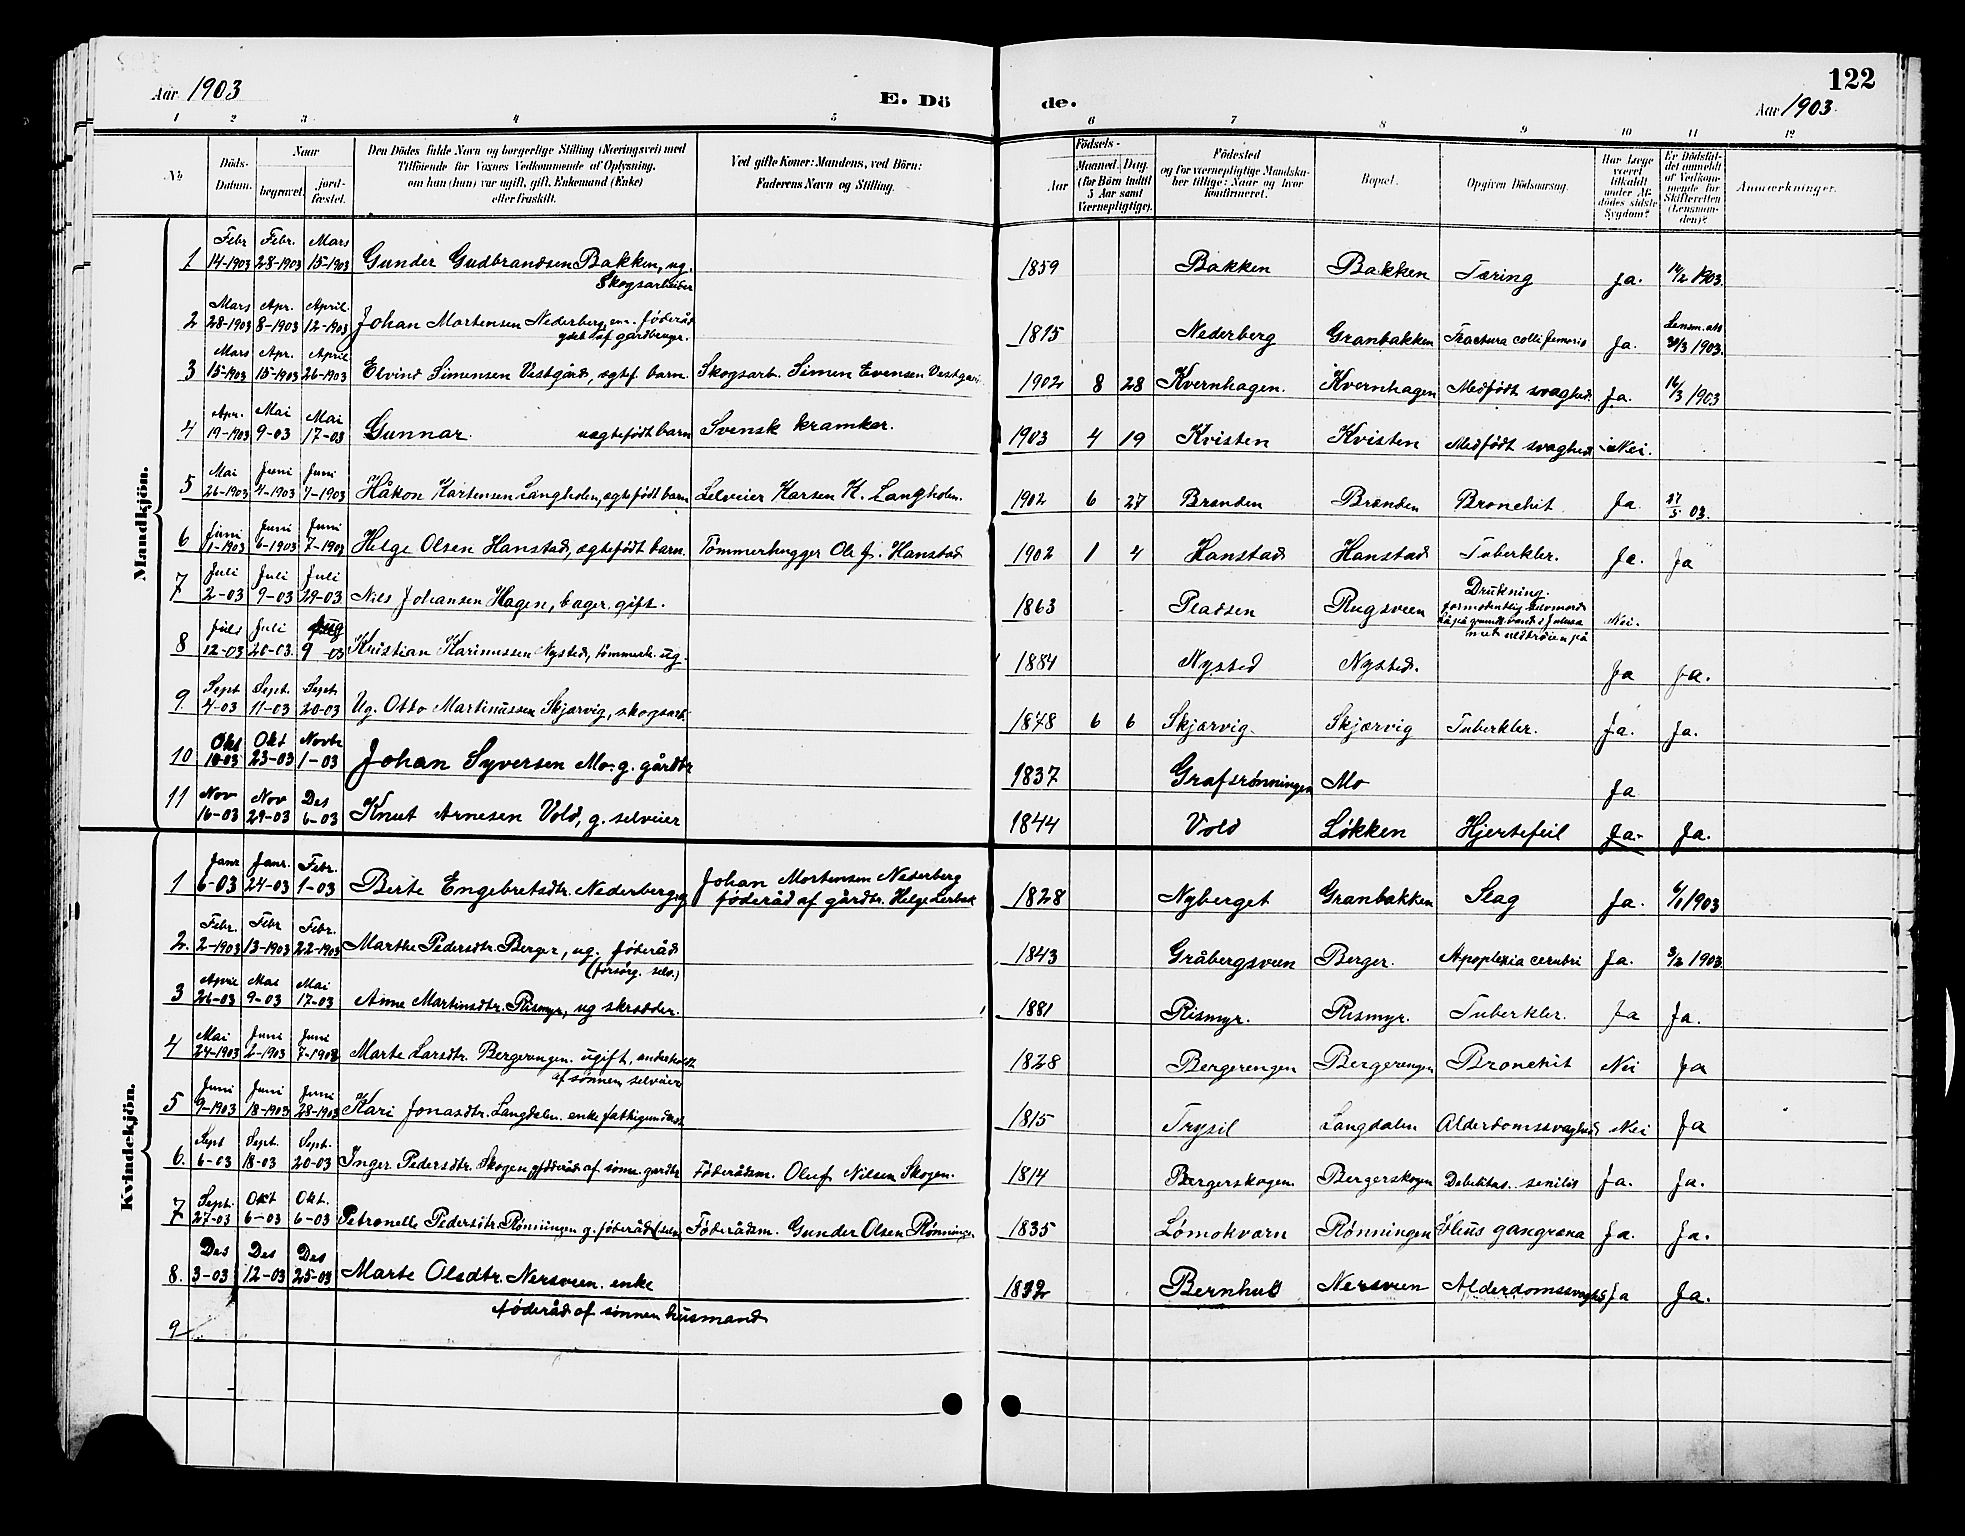 122
Aar 1903
E. Döde.
Aar 1903.
1 2 3 4 5 6 7 8 9 10 11 12
No
Döds-Datum.
Naar
begravet.
jord-fæstet.
Den Dödes fulde Navn og borgerlige Stilling (Næringsvei) med
Tilföiende for Voxnes Vedkommende af Oplysning,
om han (hun) var ugift, gift, Enkemand (Enke)
eller fraskilt.
Ved gifte Koner: Mandens, ved Börn:
Faderens Navn og Stilling.
Födsels-
Aar
Maaned. Dag.
(for Börn indtil
5 Aar samt
Værnepligtige).
Födested
og for værnepligtige Mandska-
ber tillige: Naar og hvor
konfirmeret.
Bopæl.
Opgiven Dödsaarsag.
Har Læge
været
tilkaldt
under Af-
dödes sidste
Sygdom?
Er Dödsfal-
det anmeldt
af Vedkom-
mende for
Skifteretten
(Lensman-
den)?
Anmærkninger.
Mandkjön.
1 Febr 14-1903 Febr. 28-1903 Mars 15-1903 Gunder Gudbrandsen Bakken, ug. Skogsarbeider 1859 Bakken Bakken Tæring Ja. 14/2 1903.
2 Mars 28-1903 Apr. 8-1903 April 12-1903 Johan Mortensen Nederberg, føderåd af gårdbruger. 1815 Nederberg Granbakken Fractura colli femoris Ja. Lensm. 30/3 1903.
3 Mars 15-1903 Apr. 15-1903 April 26-1903 Elvind Simensen Vestgård, ægtef. barn. Skogsarb. Simen Evensen Vestgård 1902 8 28 Kvernhagen. Kvernhagen Medfødt svaghed. Ja. 16/3 1903
4 Apr. 19-1903 Mai 9-03 Mai 17-03 Gunnar. uægtefødt barn Svensk kramkar. 1903 4 19 Kvisten Kvisten Medfødt svaghed Nei.
5 Mai 26-1903 Juni 4-1903 Juni 7-1903 Håkon Karstensen Langholen, ægtefødt barn Selveier Karsen K. Langholen. 1902 6 27 Brenden Brenden Bronchit Ja. 27/5 03.
6 Juni 1-1903 Juni 6-1903 Juni 7-1903 Helge Olsen Hanstad, ægtefødt barn. Tømmerhugger Ole J. Hanstad 1902 1 4 Hanstad Hanstad Tuberkler. Ja. Ja
7 Juli 2-03 Juli 9-03 Juli 29-03 Nils Johansen Hagen, bager. gift. 1863 Pladsen Rugsveen Drukning. formodentlig selvmord Nei.
8 Juli 12-03 Juli 20-03. Aug 9-03 Kristian Karinussen Nysted, tømmerh. ug. 1884 Nysted Nysted. Ja Ja.
9. Sept 4-03 Sept. 11-03 Sept. 20-03 Ug. Otto Martinussen Skjærvig, skogsarb. 1878 6 6 Skjærvig. Skjærvig Tuberkler. Ja. Ja.
10 Okt 10-03 Okt 23-03 Novbr 1-03 Johan Syversen Mo. g. gårdbr 1837 Grafsrønningen Mo Ja
11 Nov 16-03 Nov 29-03 Des 6-03 Knut Arnesen Vold, g. selveier 1844 Vold Løkken Hjertefeil Ja. Ja.
Kvindekjön.
1 Janr 6-03 Janr. 24-03 Febr. 1-03 Berte Engebretsdtr. Nederberg, g Johan Mortensen Nederberg føderåd af gårdbr. Helge Lerbæk 1828 Nyberget Granbakken Slag Ja. 6/1 1903
2. Febr. 2-1903 Febr 13-1903 Febr. 22-1903 Marthe Pedersdtr. Berger, ug. føderåd (forsørg. selv.) 1843 Gråbergsveen Berger. Apoplexia cerebri Ja. 3/2 1903
3 April 26-03 Mai 9-03 Mai 17-03 Anne Martinsdtr. Rismyr, ug skrædder. 1881 Rismyr. Rismyr. Tuberkler. Ja Ja.
4 Mai 24-1903 Juni 2-1903 Juni 7-1903 Marte Larsdtr. Bergerengen. ugift, underholdt af sønnen selveier 1828 Bergerengen Bergerengen Bronchit Nei Ja
5 Juni 9-1903 Juni 18-1903 Juni 28-1903 Kari Jonasdtr. Langdalen. enke fattigunderst 1815 Trysil Langdalen Alderdomssvaghed Nei Ja
6. Sept 6-03 Sept. 18-03 Sept. 20-03 Inger Pedersdtr. Skogen g føderåd af sønne gardbr Føderådsm. Oluf Nilsen Skogen. 1814 Bergerskogen. Bergerskogen Debilitas senilis Ja. Ja.
7 Sept. 27-03 Okt 6-03 Okt. 6-03 Petronelle Pedersdtr. Rønningen g. føderåd (selv) Føderådsm. Gunder Olsen Rønningen. 1835 Lømokværn Rønningen Ileus gangræna Ja. Ja.
8. Des 3-03 Des 12-03 Des 25-03 Marte Olsdtr. Nersveen. enke føderåd af sønnen husmand 1812 Bernhus Nersveen Alderdomssvaghed Ja Ja.
9